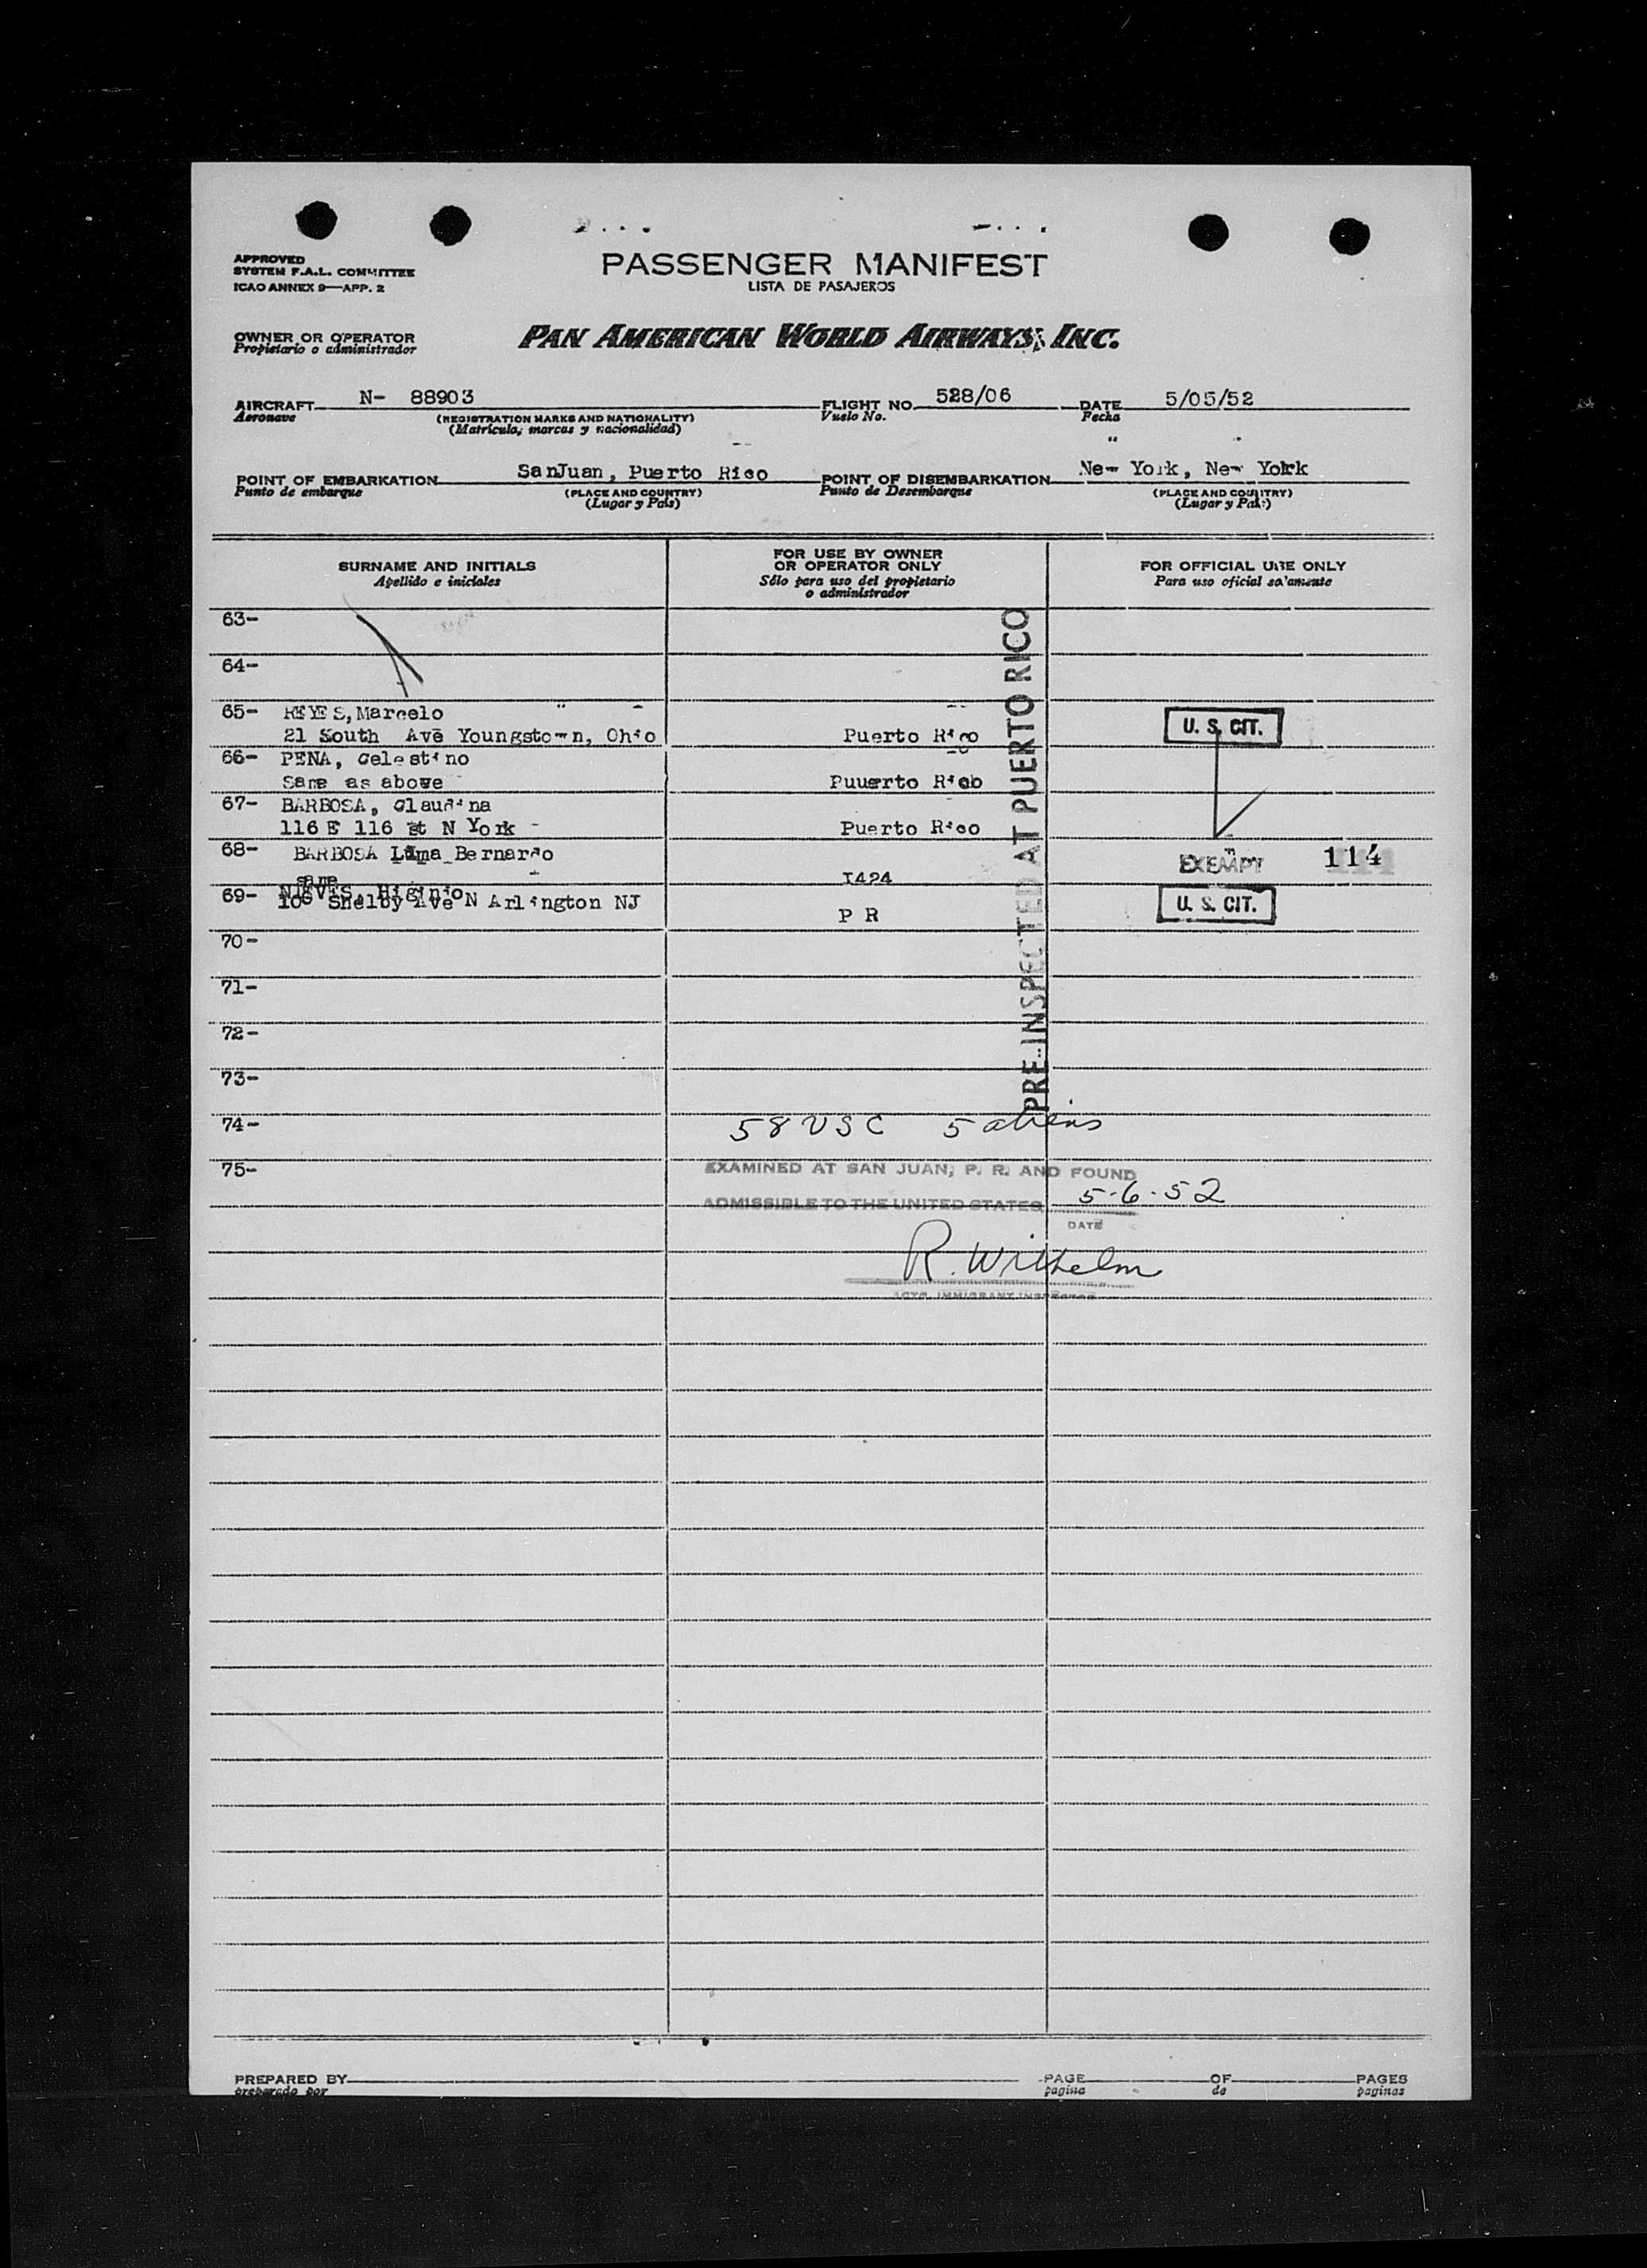 APPROVED
SYSTEM F.A.L. COMMITTEE
ICAO ANNEX 9—APP. 2
PASSENGER MANIFEST
LISTA DE PASAJEROS
OWNER OR OPERATOR
Propietario o administrador
PAN AMERICAN WORLD AIRWAYS, INC.
AIRCRAFT N- 88903
Aeronave
(REGISTRATION MARKS AND NATIONALITY)
(Matrícula, marcas y nacionalidad)
FLIGHT NO. 528/06
Vuelo No.
DATE 5/05/52
Fecha
POINT OF EMBARKATION SanJuan, Puerto Rico
Punto de embarque
(PLACE AND COUNTRY)
(Lugar y País)
POINT OF DISEMBARKATION New York, New York
Punto de Desembarque
(PLACE AND COUNTRY)
(Lugar y País)
SURNAME AND INITIALS
Apellido e iniciales
FOR USE BY OWNER
OR OPERATOR ONLY
Sólo para uso del propietario
o administrador
FOR OFFICIAL USE ONLY
Para uso oficial solamente
63-
64-
65- REYES, Marcelo
21 South Ave Youngstown, Ohio Puerto Rico
U. S. CIT.
66- PENA, Celestino
Same as above Puuerto Rico
67- BARBOSA, Claudina
116 E 116 st N York - Puerto Rico
68- BARBOSA Luma Bernardo
same I424
EXEMPT 114
69- NIEVES, Higinio
100 Shelby Ave N Arlington NJ P R
U. S. CIT.
70-
71-
72-
73-
74-
75-
PRE-INSPECTED AT PUERTO RICO
58 USC 5 aliens
EXAMINED AT SAN JUAN, P. R. AND FOUND
ADMISSIBLE TO THE UNITED STATES 5-6-52
DATE
R. Wilhelm
ACTG. IMMIGRANT INSPECTOR
PREPARED BY
preparado por
PAGE OF PAGES
pagina de paginas